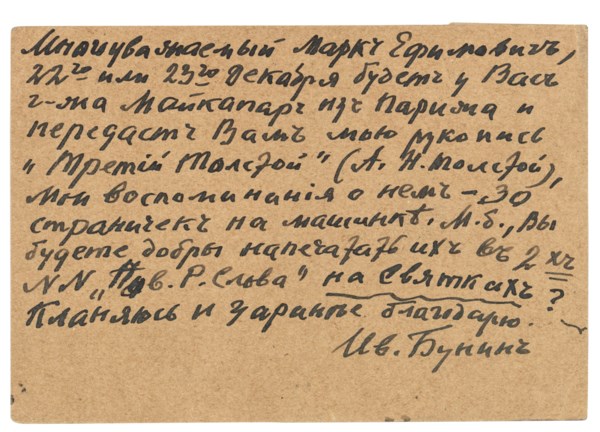 Многоуважаемый Маркъ Ефимовичъ,
22го или 23го Декабря будетъ у Васъ
г-жа Майкапаръ изъ Парижа и
передастъ Вамъ мою рукопись
„Третій Толстой" (А. Н. Толстой),
мои воспоминанія о немъ – 30
страничекъ на машинкѣ. М. б., Вы
будете добры напечатать ихъ въ 2хъ
NN „Нов. Р. Слова" на Святкихъ?
Кланяюсь и заранѣе благодарю.
Ив. Бунинъ